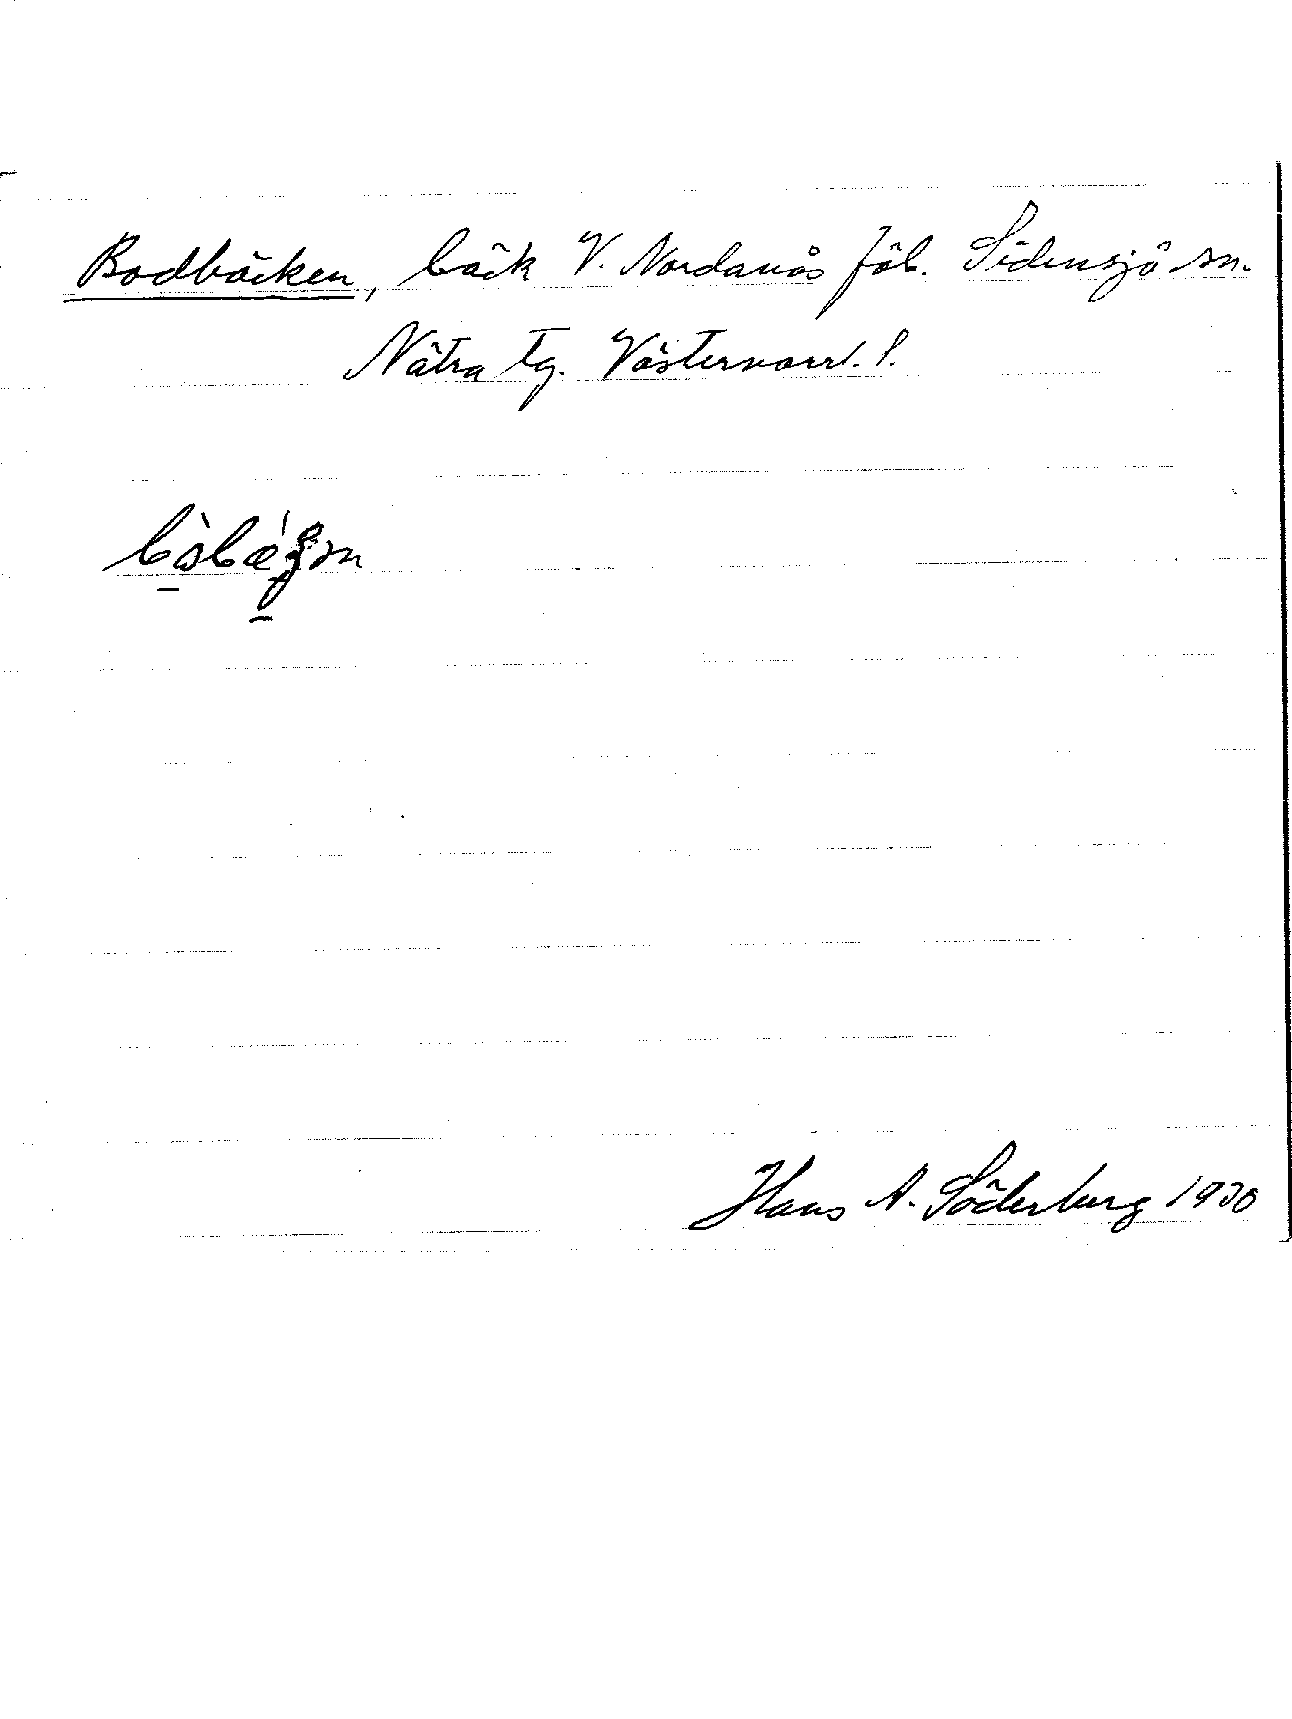 Bodbäcken, bäck V. Nordanås fäb. Sidensjö sn.
Nätra tg. Västernorrl. l.
Hans A. Söderberg 1930